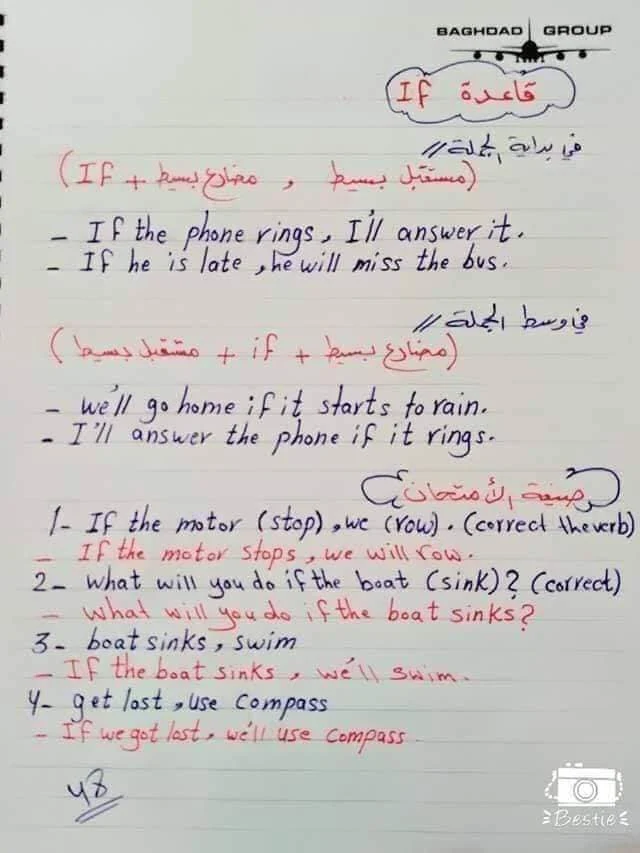 BAGHDAD GROUP
قاعدة If
في بداية الجملة //
(If + مضارع بسيط , مستقبل بسيط)
- If the phone rings, I'll answer it.
- If he is late, he will miss the bus.
في وسط الجملة //
(مستقبل بسيط + if + مضارع بسيط)
- we'll go home if it starts to rain.
- I'll answer the phone if it rings.
صيغة الأمتحان
1- If the motor (stop), we (row). (correct the verb)
- If the motor stops, we will row.
2- what will you do if the boat (sink)? (correct)
- what will you do if the boat sinks?
3- boat sinks, swim
- If the boat sinks, we'll swim.
4- get lost, use compass
- If we got lost, we'll use compass.
48
Bestie